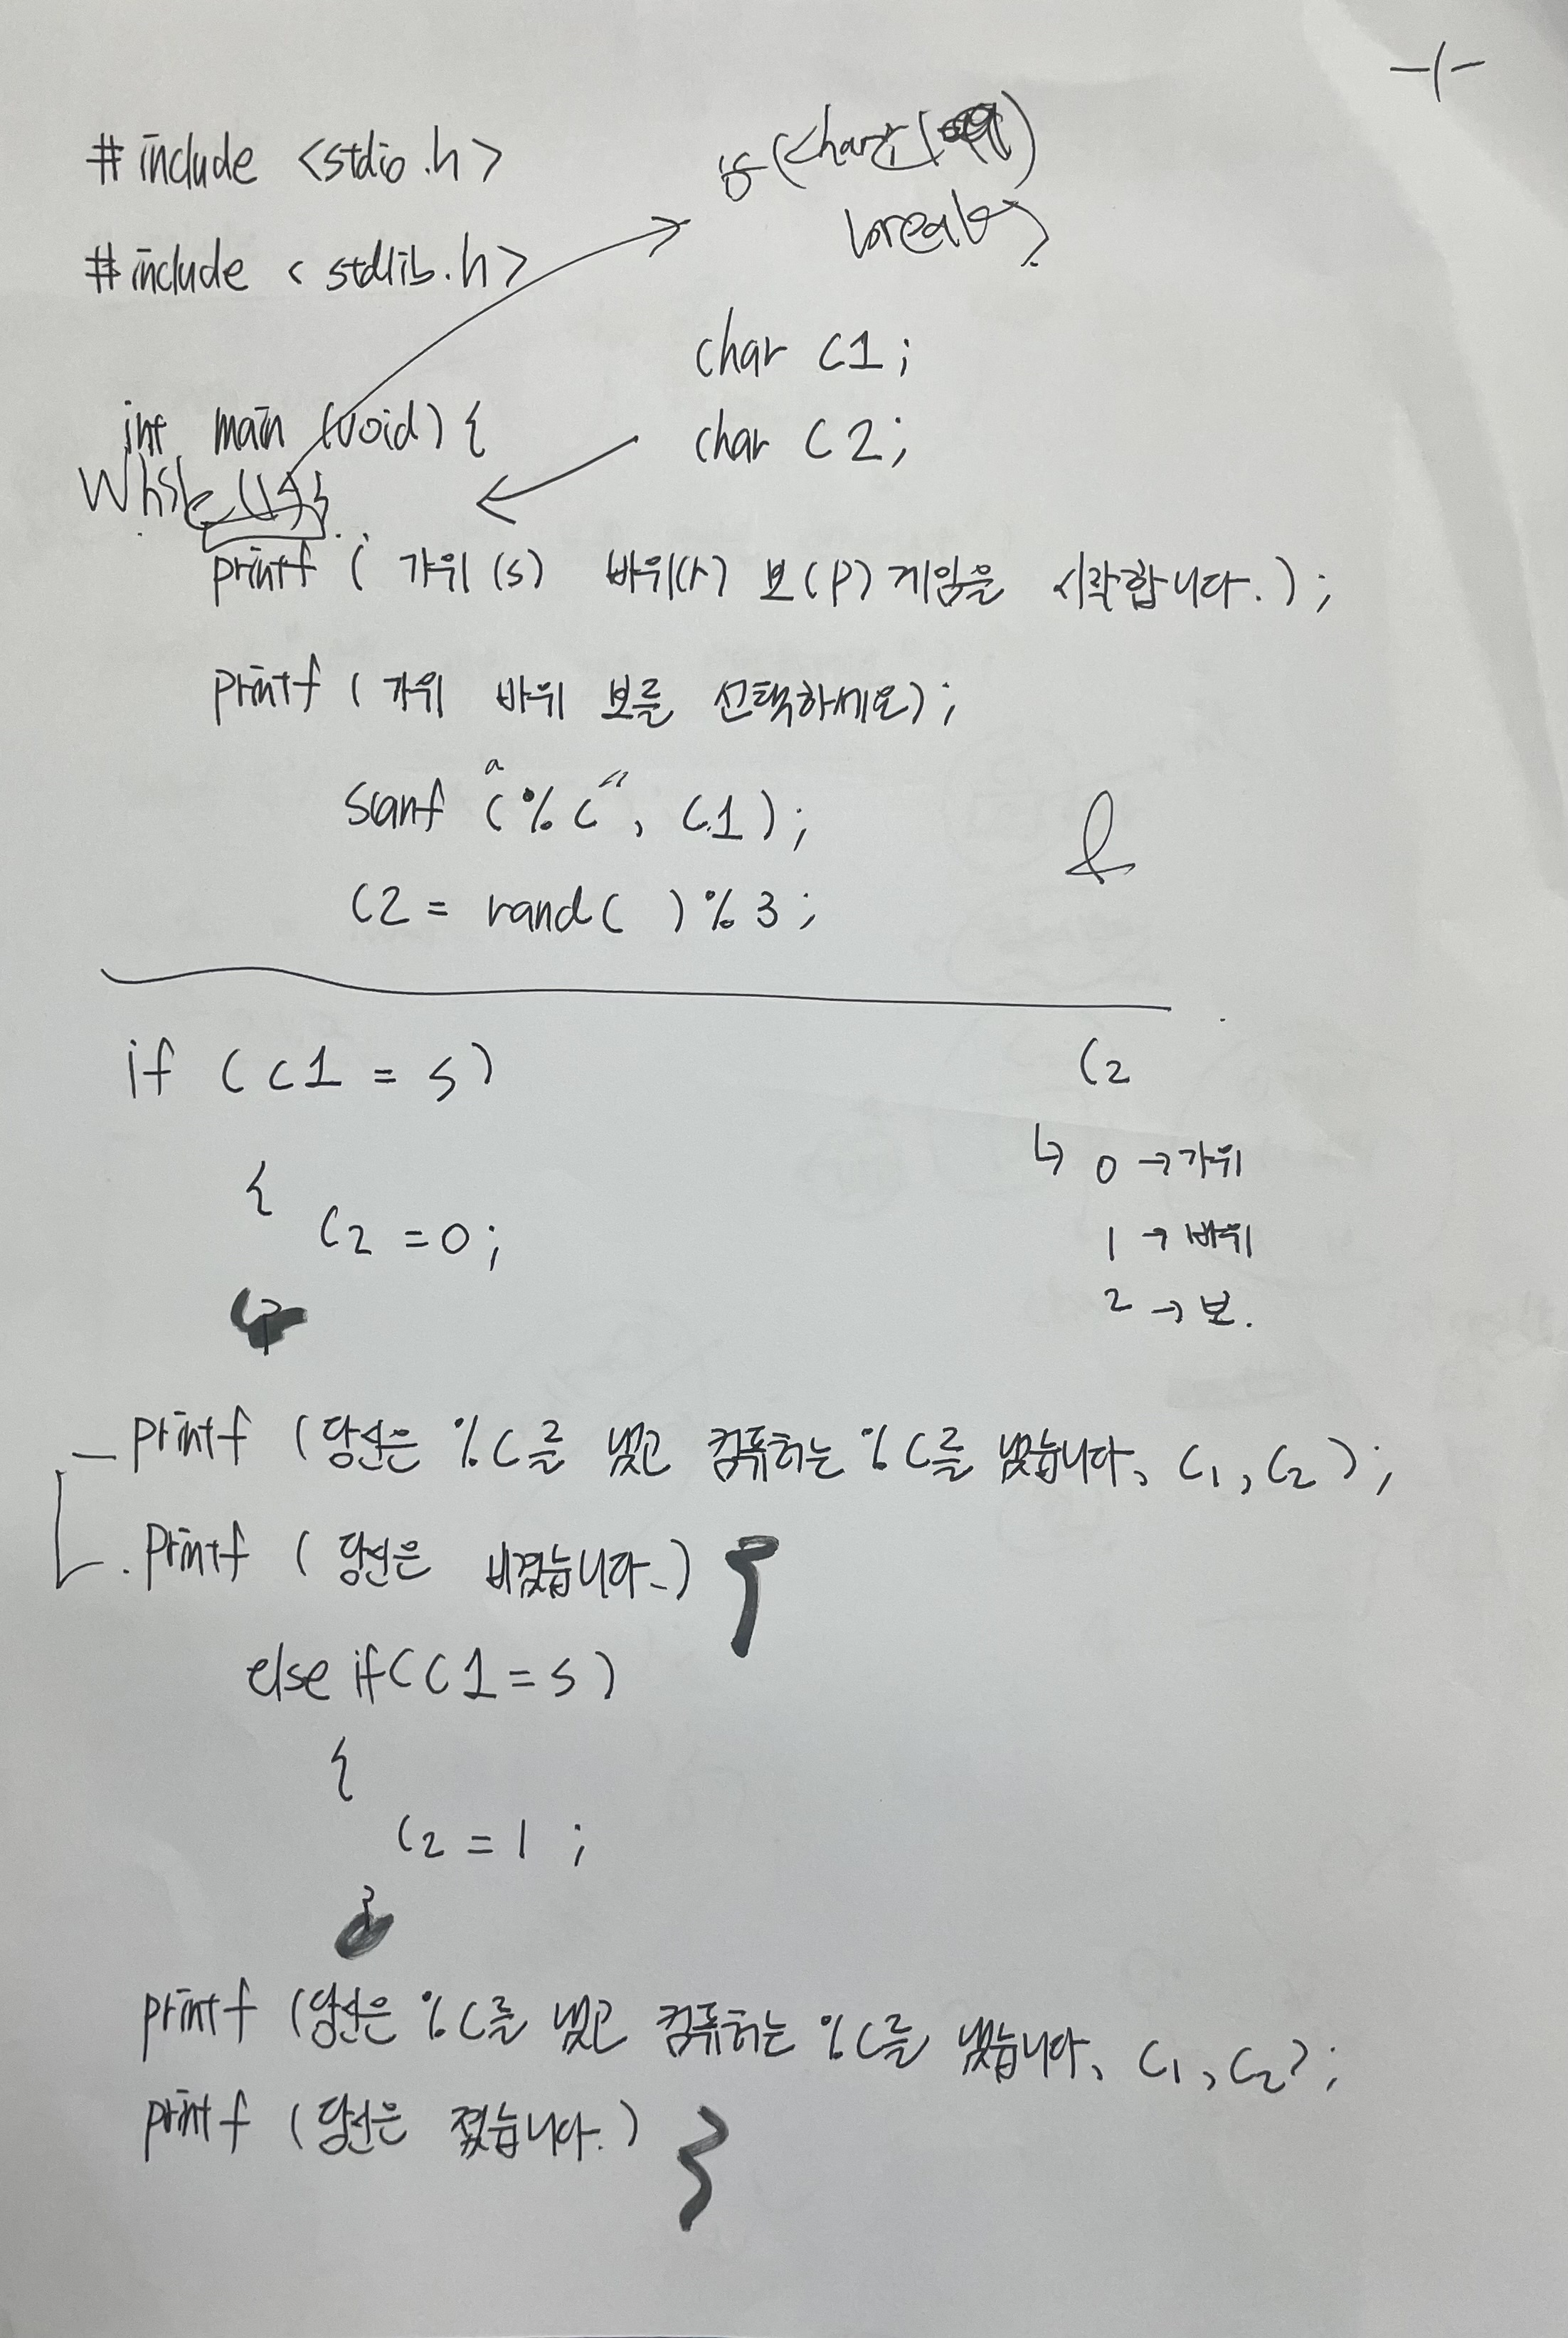 -1-
#include <stdio.h>
#include <stdlib.h>
if (char
break;
char C1;
char C2;
int main (void) {
While (1) {
printf ( 가위(s) 바위(r) 보(p) 게임을 시작합니다.);
printf ( 가위 바위 보를 선택하세요);
scanf ("%c", C1);
&
C2 = rand( )%3;
if (C1 = s)
{
C2 = 0;
C2
↳ 0 → 가위
1 → 바위
2 → 보.
printf (당신은 %C를 냈고 컴퓨터는 %C를 냈습니다, C1, C2);
printf ( 당신은 비겼습니다.) }
else if(C1 = s)
{
C2 = 1 ;
}
printf (당신은 %C를 냈고 컴퓨터는 %C를 냈습니다, C1, C2);
printf (당신은 졌습니다.) }